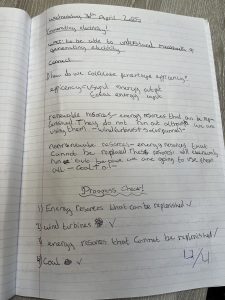 Wednesday 30th April 2025
Generating electricity
to be able to understand
generating electricity
Connect
How do we calculate percentage efficiency?
efficiency = useful energy output
total energy input
renewable resorces - energy resorces that can be
they do not run out although we are
using them - wind turbines + solar panel
Non renewable resorces - energy resorces that
cannot be replaced these resorces will eventually
run out because we are going to use them
all - coal + oil
Progress Check!
1) Energy resorces that can be replenished ✓
2) wind turbines ✓
3) energy resorces that cannot be replenished ✓
4) Coal ✓
4/4